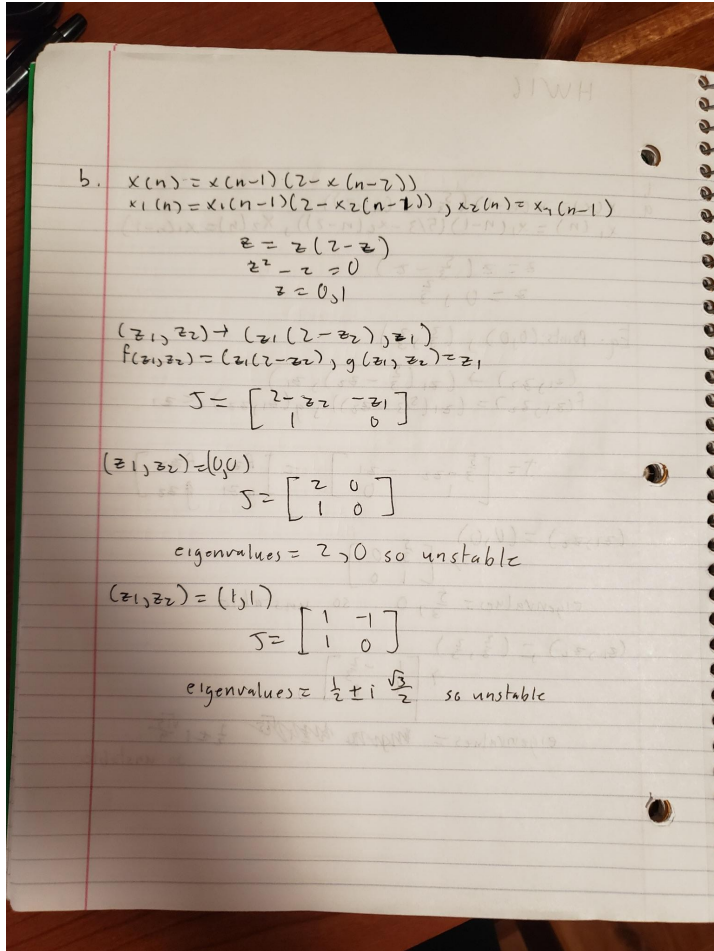 HW16
b. x(n) = x(n-1)(2-x(n-2))
x1(n) = x1(n-1)(2-x2(n-1)), x2(n) = x1(n-1)
z = z(2-z)
z² - z = 0
z = 0,1
(z1,z2) → (z1(2-z2), z1)
f(z1,z2) = (z1(2-z2), g(z1,z2) = z1
J = [2-z2 -z1
1 0]
(z1,z2) = (0,0)
J = [2 0
1 0]
eigenvalues = 2,0 so unstable
(z1,z2) = (1,1)
J = [1 -1
1 0]
eigenvalues = 1/2 ± i √3/2 so unstable